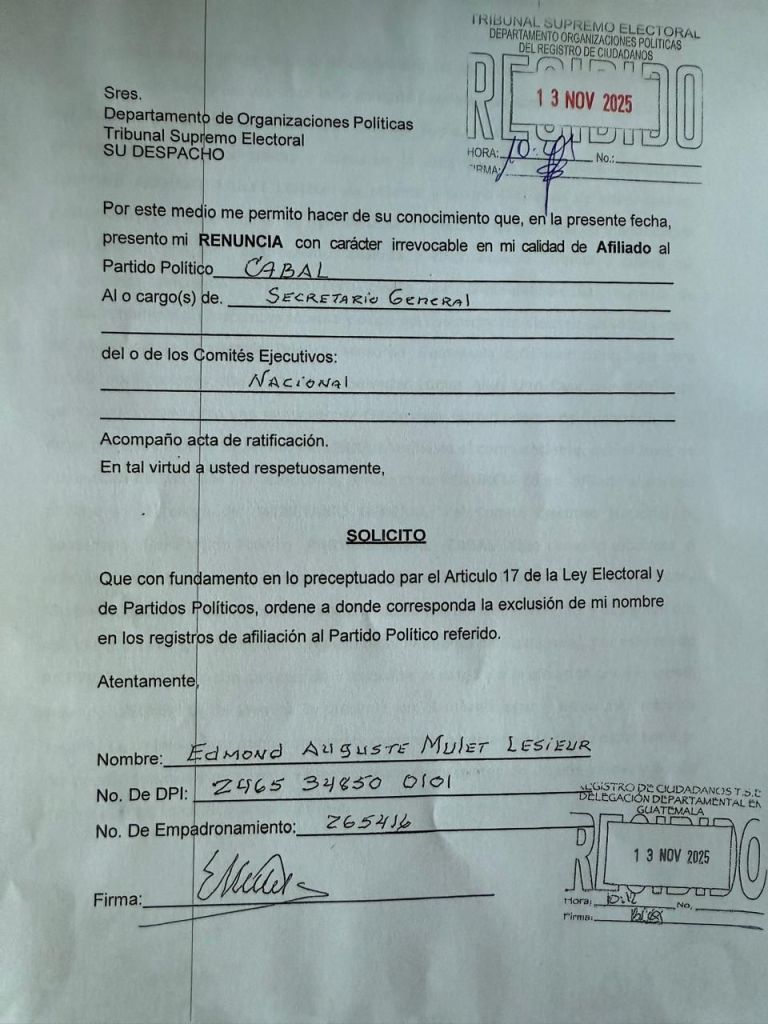 TRIBUNAL SUPREMO ELECTORAL
DEPARTAMENTO ORGANIZACIONES POLITICAS
DEL REGISTRO DE CIUDADANOS
RECIBIDO
13 NOV 2025
HORA: No.:
FIRMA:
Sres.
Departamento de Organizaciones Políticas
Tribunal Supremo Electoral
SU DESPACHO
Por este medio me permito hacer de su conocimiento que, en la presente fecha,
presento mi RENUNCIA con carácter irrevocable en mi calidad de Afiliado al
Partido Político CABAL
Al o cargo(s) de. SECRETARIO GENERAL
del o de los Comités Ejecutivos:
NACIONAL
Acompaño acta de ratificación.
En tal virtud a usted respetuosamente,
SOLICITO
Que con fundamento en lo preceptuado par el Articulo 17 de la Ley Electoral y
de Partidos Políticos, ordene a donde corresponda la exclusión de mi nombre
en los registros de afiliación al Partido Político referido.
Atentamente,
Nombre: EDMOND AUGUSTE MULET LESIEUR
No. De DPI: 2465 34850 0101
No. De Empadronamiento: 265416
Firma:
REGISTRO DE CIUDADANOS T.S.E
DELEGACIÓN DEPARTAMENTAL EN
GUATEMALA
RECIBIDO
13 NOV 2025
Hora: 10:12 No.
Firma: